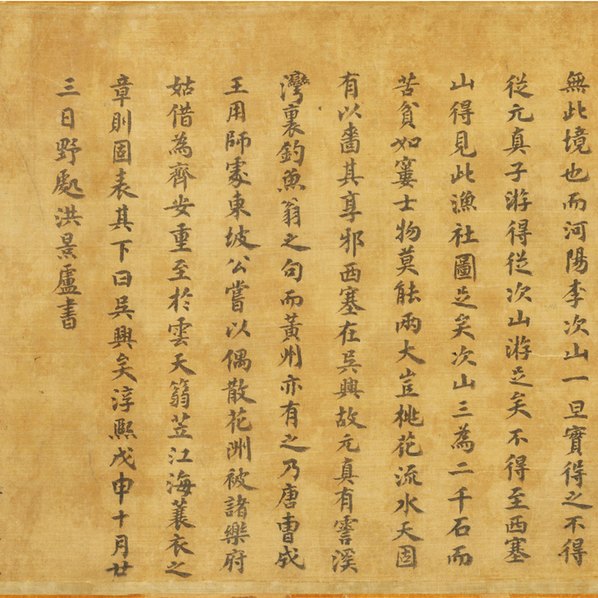 無此境也而河陽李次山一旦實得之不得
從元真子游得從次山游足矣不得至西塞
山得見此漁社圖足矣次山三為二千石而
苦貧如窶士物莫能兩大豈桃花流水天固
有以嗇其享邪西塞在吳興故元真有霅溪
灣裏釣魚翁之句而黃州亦有之乃唐曹成
王用師處東坡公嘗以偶散花洲被諸樂府
姑借為齊安重至於雲天篛笠江海蓑衣之
章則固表其下曰吳興矣淳熙戊申十月廿
三日野處洪景盧書